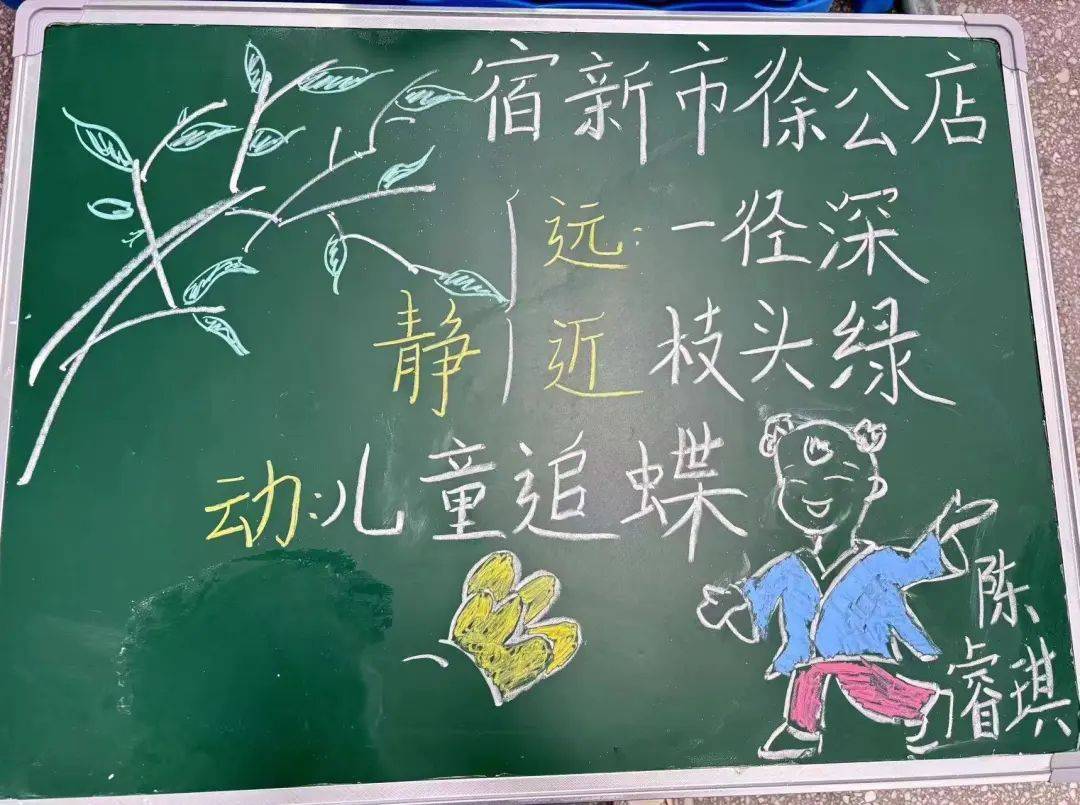 宿新市徐公店
远:一径深
静
近 枝头绿
动:儿童追蝶
陈
睿琪